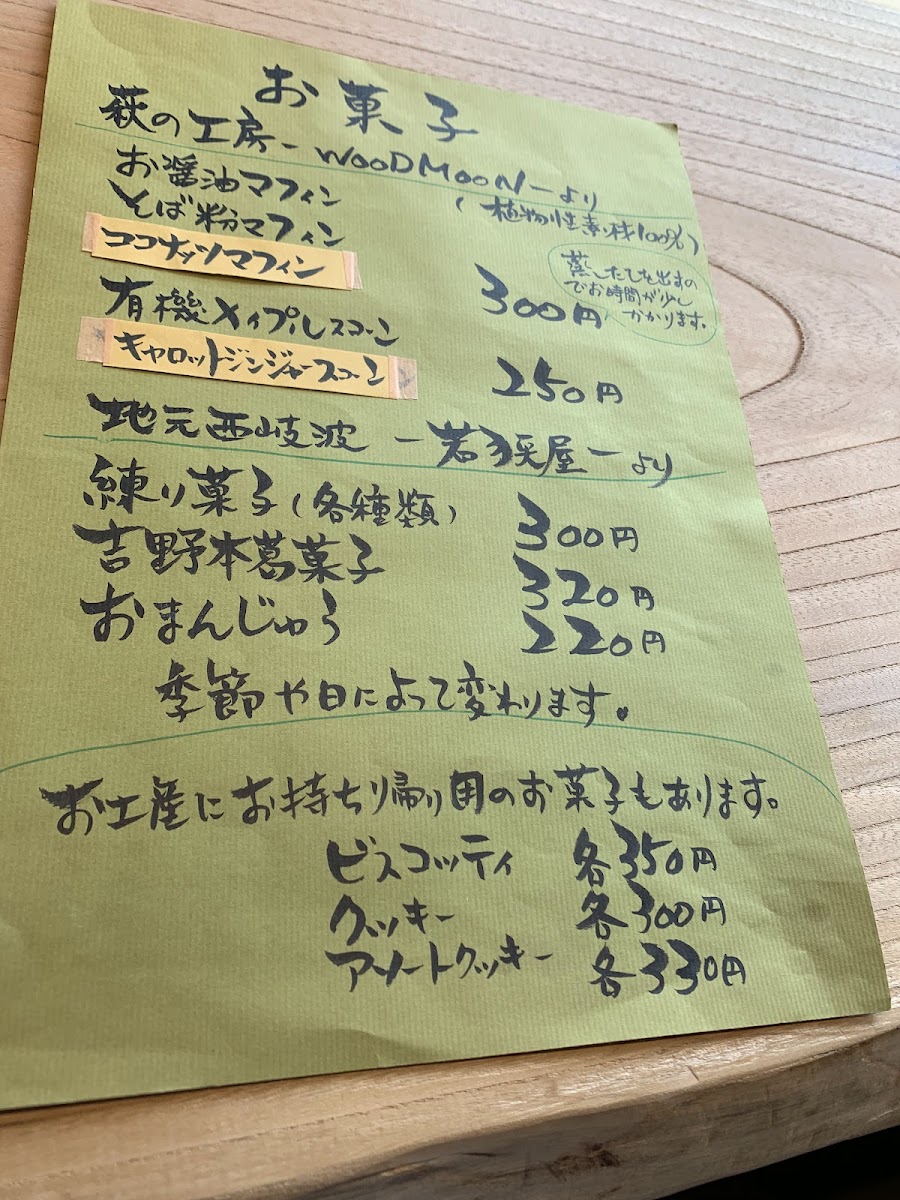 お菓子
萩の工房ーWOODMOONーより
お醤油マフィン
(植物性素材100%)
そば粉マフィン
ココナッツマフィン
300円
蒸したてを出すの
でお時間が少し
かかります。
有機メイプルスコーン
キャロットジンジャースコーン
250円
地元西岐波ー若狭屋ーより
練り菓子(各種類) 300円
吉野本葛菓子 320円
おまんじゅう 220円
季節や日によって変わります。
お土産にお持ち帰り用のお菓子もあります。
ビスコッティ 各350円
クッキー 各300円
アソートクッキー 各330円